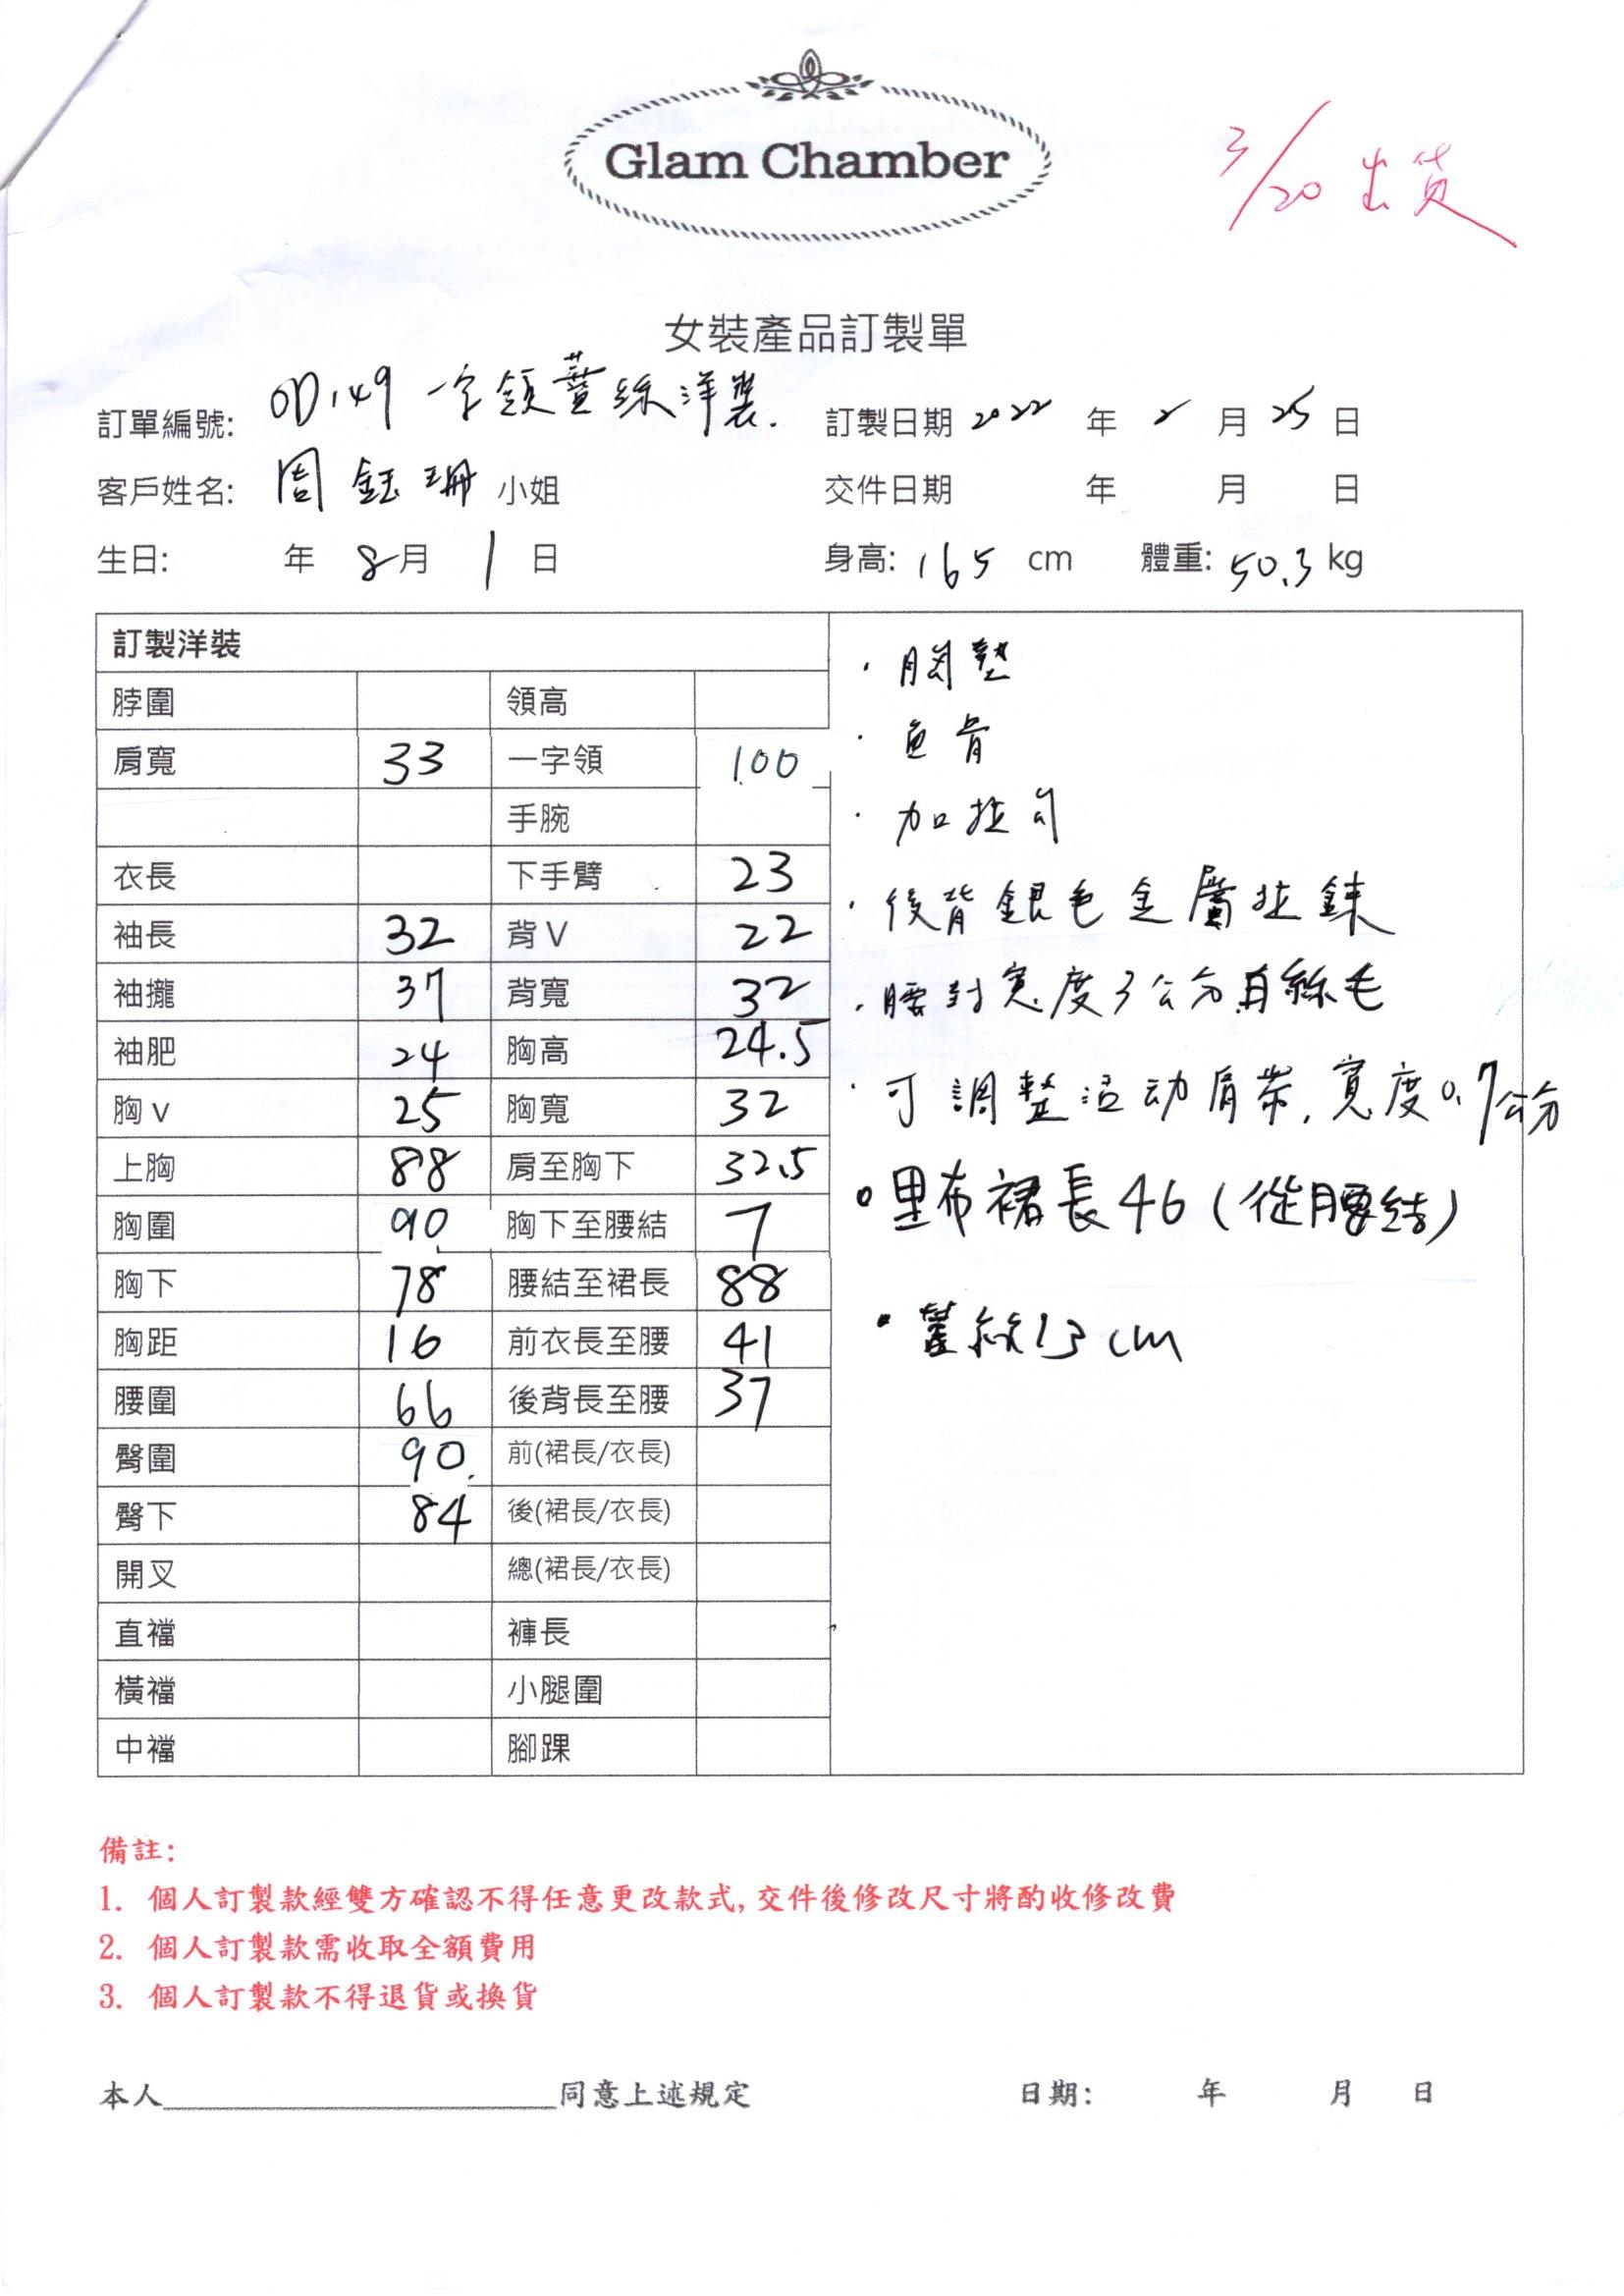 Glam Chamber
3/20 出货
女裝產品訂製單
訂單編號: OD149 一字領蕾絲洋裝.
訂製日期 2022 年 2 月 25 日
客戶姓名: 周鈺珊 小姐
交件日期 年 月 日
生日: 年 8月 1 日
身高: 165 cm 體重: 50.3 kg
訂製洋裝
脖圍 領高
肩寬 33 一字領 100
手腕
衣長 下手臂 23
袖長 32 背V 22
袖攏 37 背寬 32
袖肥 24 胸高 24.5
胸v 25 胸寬 32
上胸 88 肩至胸下 32.5
胸圍 90 胸下至腰結 7
胸下 78 腰結至裙長 88
胸距 16 前衣長至腰 41
腰圍 66 後背長至腰 37
臀圍 90. 前(裙長/衣長)
臀下 84 後(裙長/衣長)
開叉 總(裙長/衣長)
直襠 褲長
橫襠 小腿圍
中襠 腳踝
· 胸墊
· 魚骨
· 加拉勾
· 後背銀色金屬拉鍊
· 腰封寬度3公分
· 可調整活动肩帶, 寬度0.7公分
· 里布裙長46 (從腰結)
· 13cm
備註:
1. 個人訂製款經雙方確認不得任意更改款式, 交件後修改尺寸將酌收修改費
2. 個人訂製款需收取全額費用
3. 個人訂製款不得退貨或換貨
本人____________________同意上述規定 日期: 年 月 日